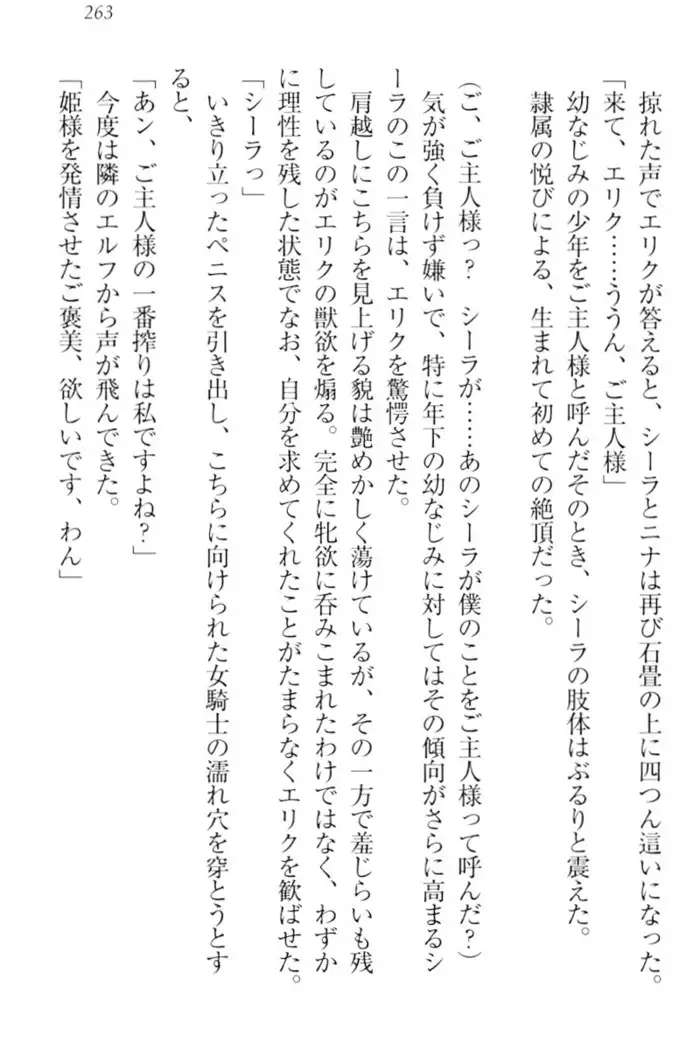 263
掠れた声でエリクが答えると、シーラとニナは再び石畳の上に四つん這いになった。
「来て、エリク……ううん、ご主人様」
幼なじみの少年をご主人様と呼んだそのとき、シーラの肢体はぶるりと震えた。
隷属の悦びによる、生まれて初めての絶頂だった。
(ご、ご主人様っ？　シーラが……あのシーラが僕のことをご主人様って呼んだ？)
気が強く負けず嫌いで、特に年下の幼なじみに対してはその傾向がさらに高まるシ
ーラのこの一言は、エリクを驚愕させた。
肩越しにこちらを見上げる貌は艶めかしく蕩けているが、その一方で羞じらいも残
しているのがエリクの獣欲を煽る。完全に牝欲に呑みこまれたわけではなく、わずか
に理性を残した状態でなお、自分を求めてくれたことがたまらなくエリクを歓ばせた。
「シーラっ」
いきり立ったペニスを引き出し、こちらに向けられた女騎士の濡れ穴を穿とうとす
ると、
「あン、ご主人様の一番搾りは私ですよね？」
今度は隣のエルフから声が飛んできた。
「姫様を発情させたご褒美、欲しいです、わん」